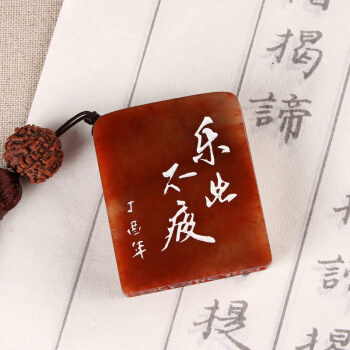 乐此
不疲
丁酉年
揭諦
揭諦
提